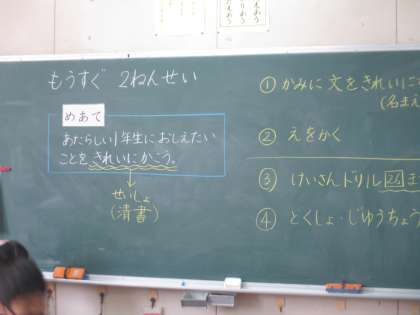 もうすぐ 2ねんせい
めあて
あたらしい1年生におしえたい
ことをきれいにかこう。
せいしょ
(清書)
① かみに文をきれいに
(名まえ
② えをかく
③ けいさんドリル 25 ま
④ とくしょ・じゆうちょう